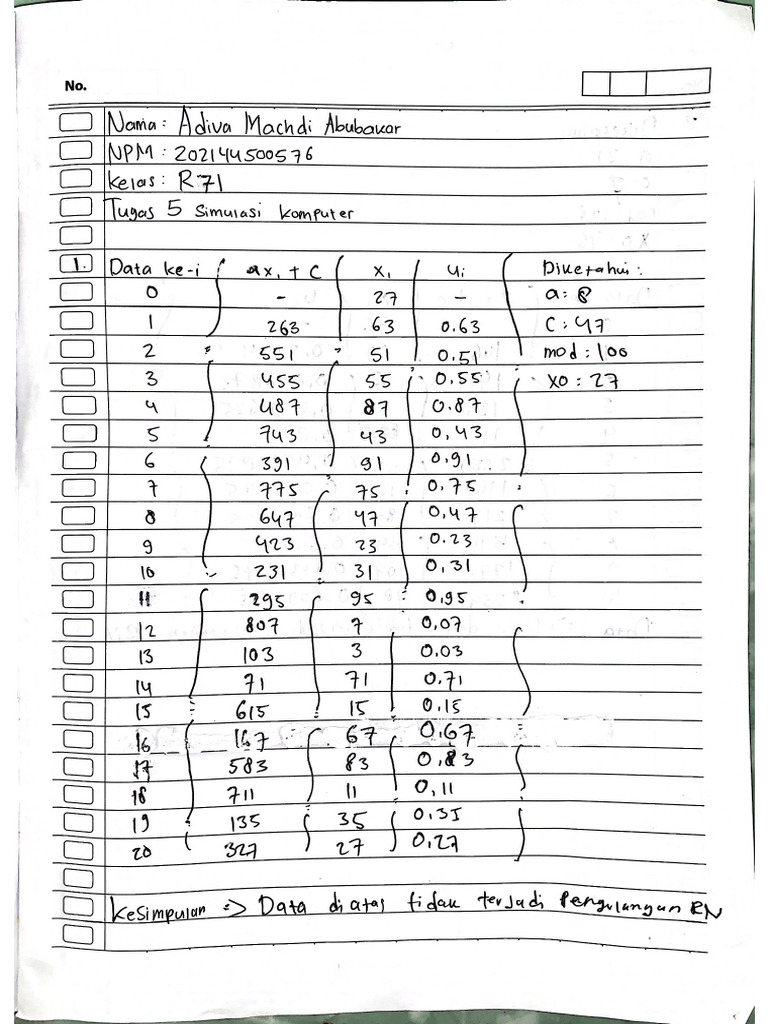 No.
Nama : Adiva Machdi Abubakar
NPM : 202144500576
Kelas : R71
Tugas 5 Simulasi Komputer
1. Data ke-i ax, + C x, ui Diketahui :
0 - 27 - a : 8
1 263 63 0.63 C : 47
2 551 51 0.51 mod : 100
3 455 55 0.55 x0 : 27
4 487 87 0.87
5 743 43 0,43
6 391 91 0.91
7 775 75 0.75
8 647 47 0,47
9 423 23 0.23
10 231 31 0,31
11 295 95 0,95
12 807 7 0,07
13 103 3 0.03
14 71 71 0.71
15 615 15 0.15
16 167 67 0.67
17 583 83 0.83
18 711 11 0,11
19 135 35 0.35
20 327 27 0,27
Kesimpulan => Data diatas tidak terjadi Pengulangan RN